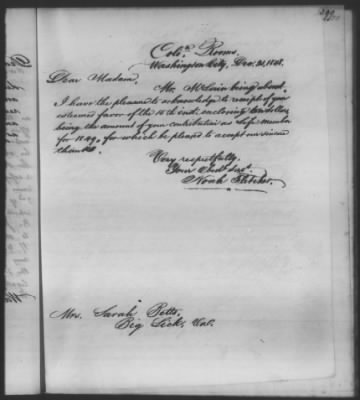 Col'n. Rooms.
Washington City, Dec. 20, 1848.
Dear Madam,
Mr. McLain being about.
I have the pleasure to acknowledge the receipt of your
esteemed favor of the 15th inst. enclosing ten dollars
being the amount of your contribution as life member
for 1849, for which be pleased to accept our sincere
thanks.
Very respectfully,
Your Obdt Servt.
Noah Fletcher.
Mrs. Sarah Betts,
Big Lick,